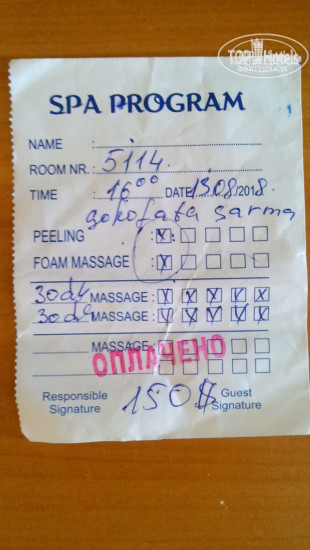 TOP Hotels
SPA PROGRAM
NAME :
ROOM NR. : 5114.
TIME : 16 00 DATE 13.08/2018.
şokofata sarma
PEELING :
FOAM MASSAGE :
MASSAGE :
MASSAGE :
MASSAGE :
ОПЛАЧЕНО
Responsible Signature 150$ Guest Signature